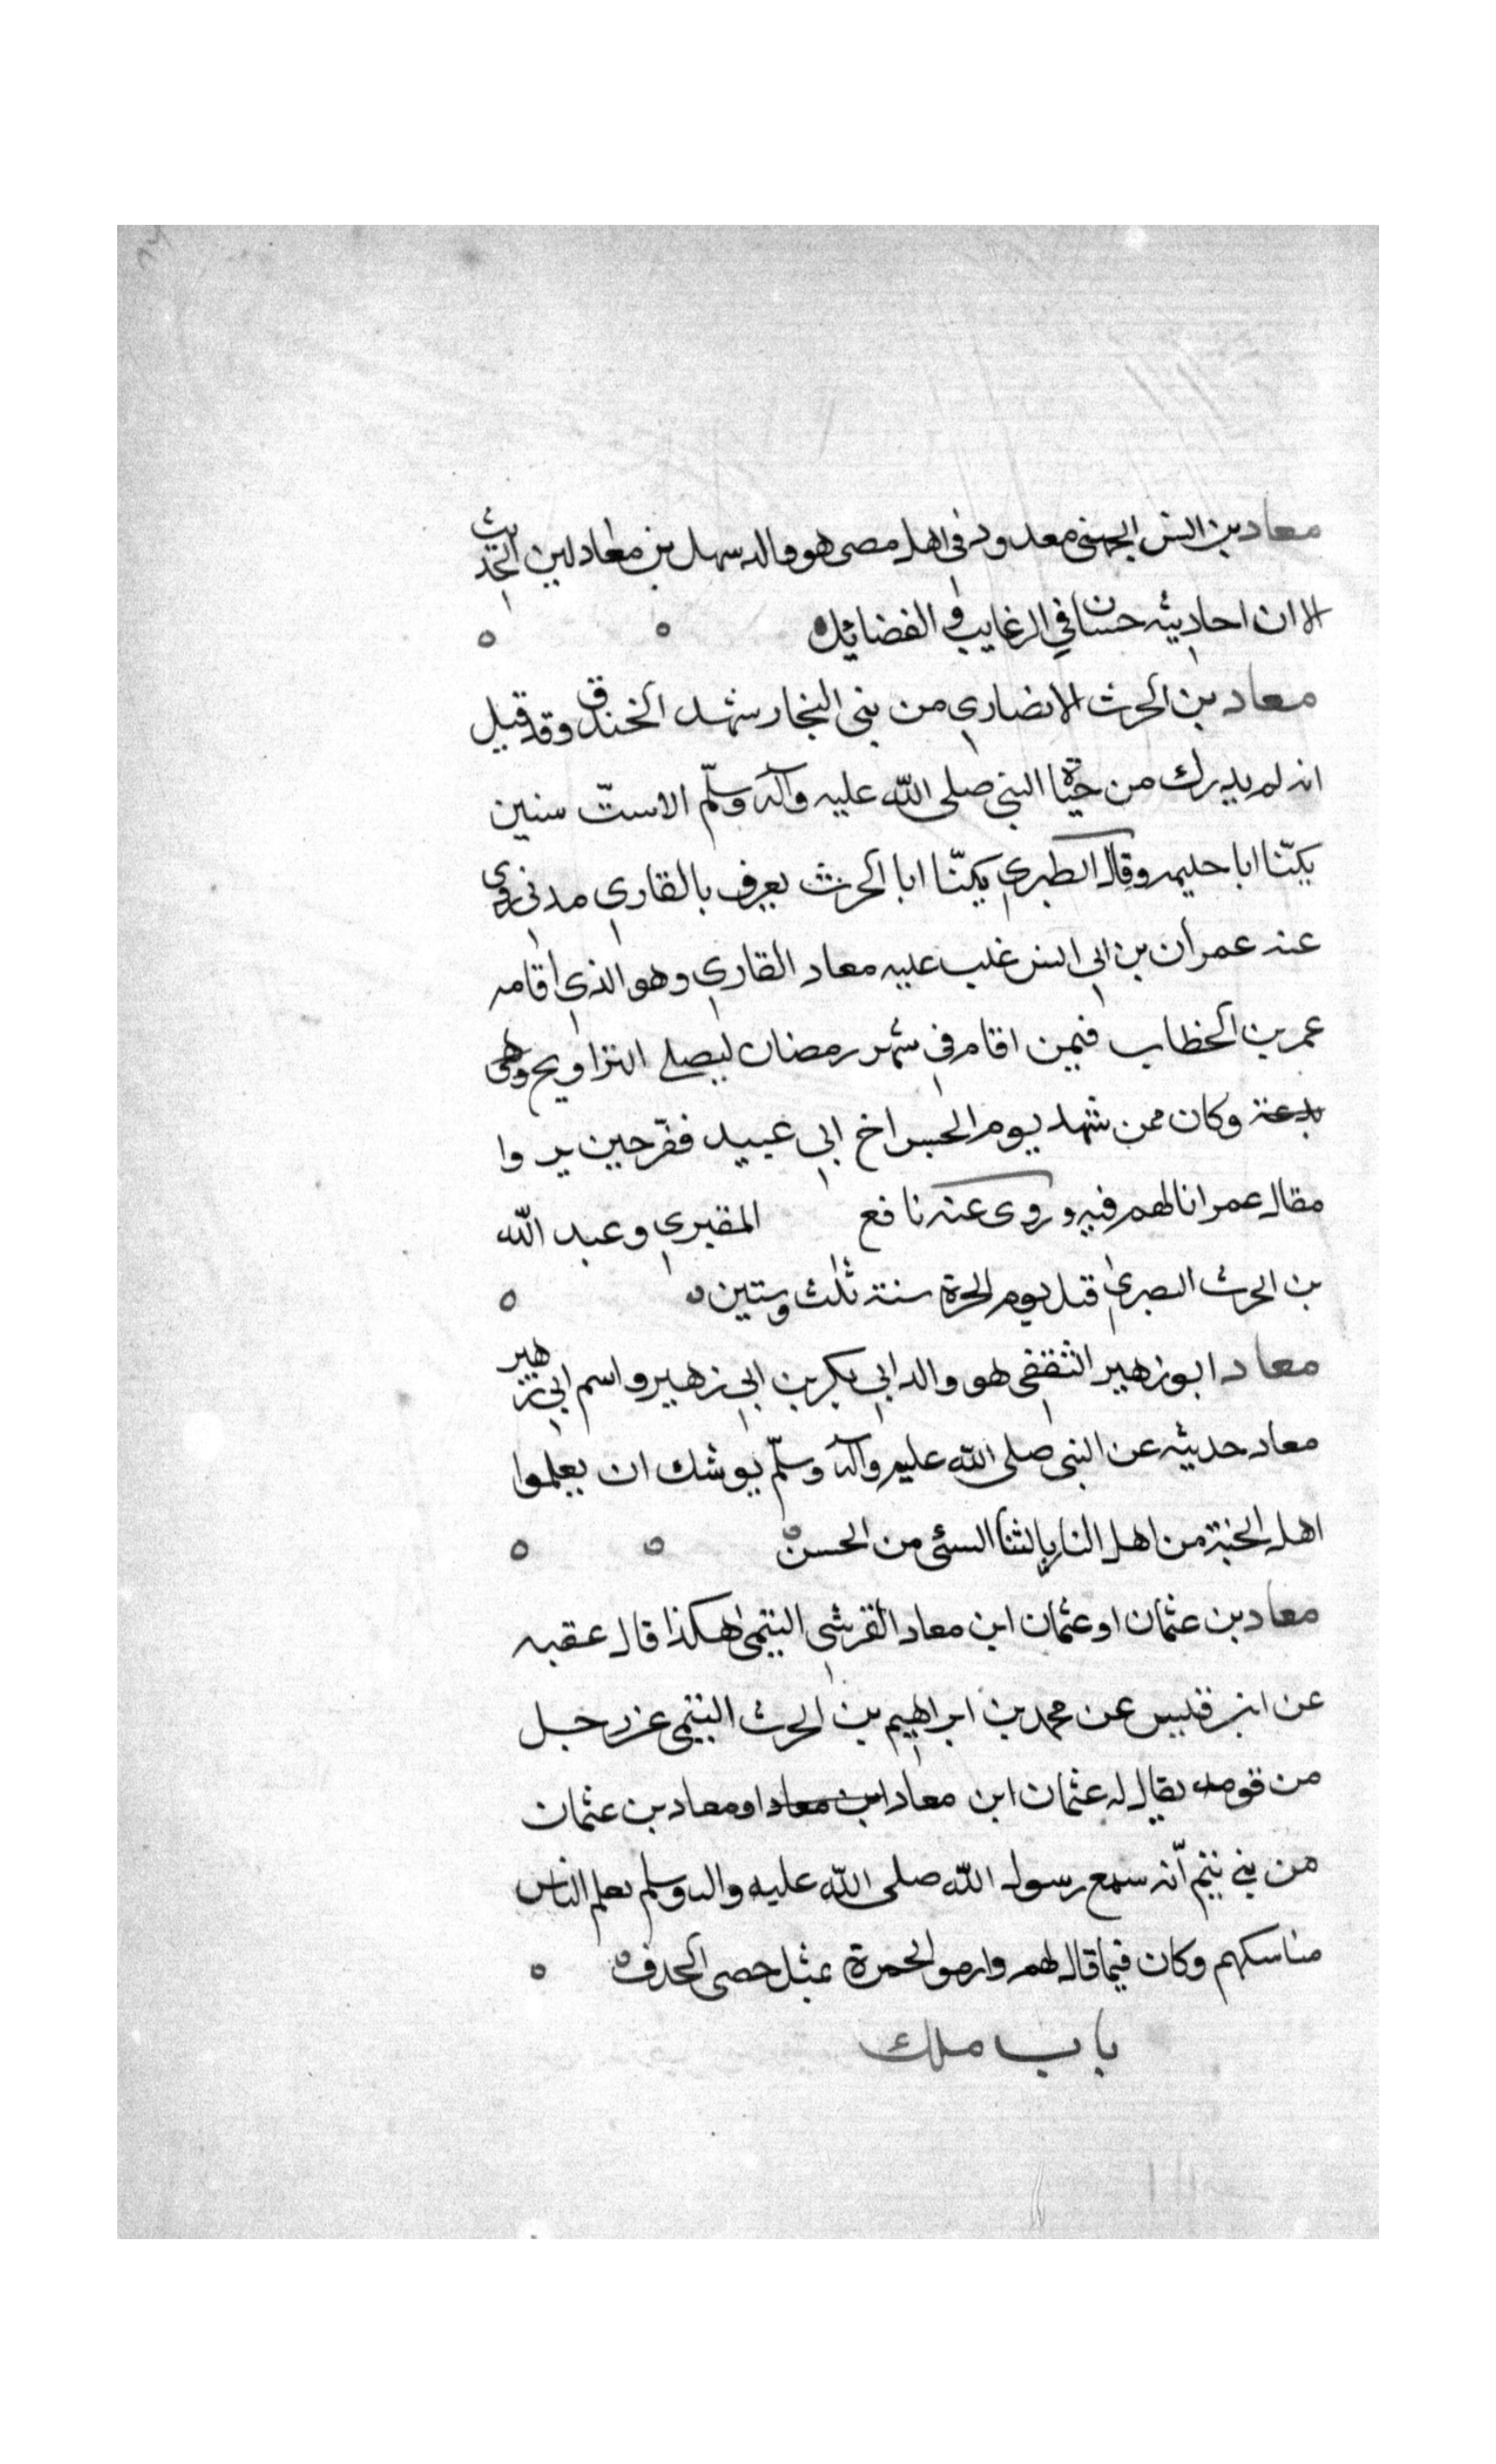 معاد بن انس الجهني معدود في اهل مصر هو والد سهل بن معاد لين الحديث
الا ان احاديثه حسان في الرغايب و الفضائل
معاد بن الحرث الانصاري من بني النجار شهد الخندق وقد قيل
انه لم يدرك من حياة النبي صلى الله عليه وآله وسلّم الا ستّ سنين
يكنّا ابا حليمه وقال الطبري يكنّا ابا الحرث يعرف بالقاري مدني روى
عنه عمران بن ابي انس غلب عليه معاد القاري وهو الذي اقامه
عمر بن الخطاب فيمن اقام في شهر رمضان ليصلي التراويح وهى
بدعة وكان ممن شهد يوم الجسر اخ ابي عبيد ففر حين
مقال عمر انا لهم فيه وروى عنه نافع المقبري وعبد الله
بن الحرث البصري قتل يوم الحرة سنة ثلث وستين
معاد ابو زهير الثقفي هو والد ابي بكر بن ابي زهير و اسم ابي زهير
معاد حديثه عن النبي صلى الله عليه وآله وسلّم يوشك ان يعلموا
اهل الجنة من اهل النار بالثنا السئ من الحسن
معاد بن عثمان او عثمان ابن معاد القرشي التيمي هكذا قال عقبه
عن محمد بن ابراهيم بن الحرث التيمي عن رجل
من قومه يقال له عثمان ابن معاد ابن معاد او معاد بن عثمان
من بني تيم انّه سمع رسول الله صلى الله عليه واله وسلم يعلم الناس
مناسكهم وكان فيما قال لهم وارمو الجمرة بمثل حصى الحدف
باب ملك